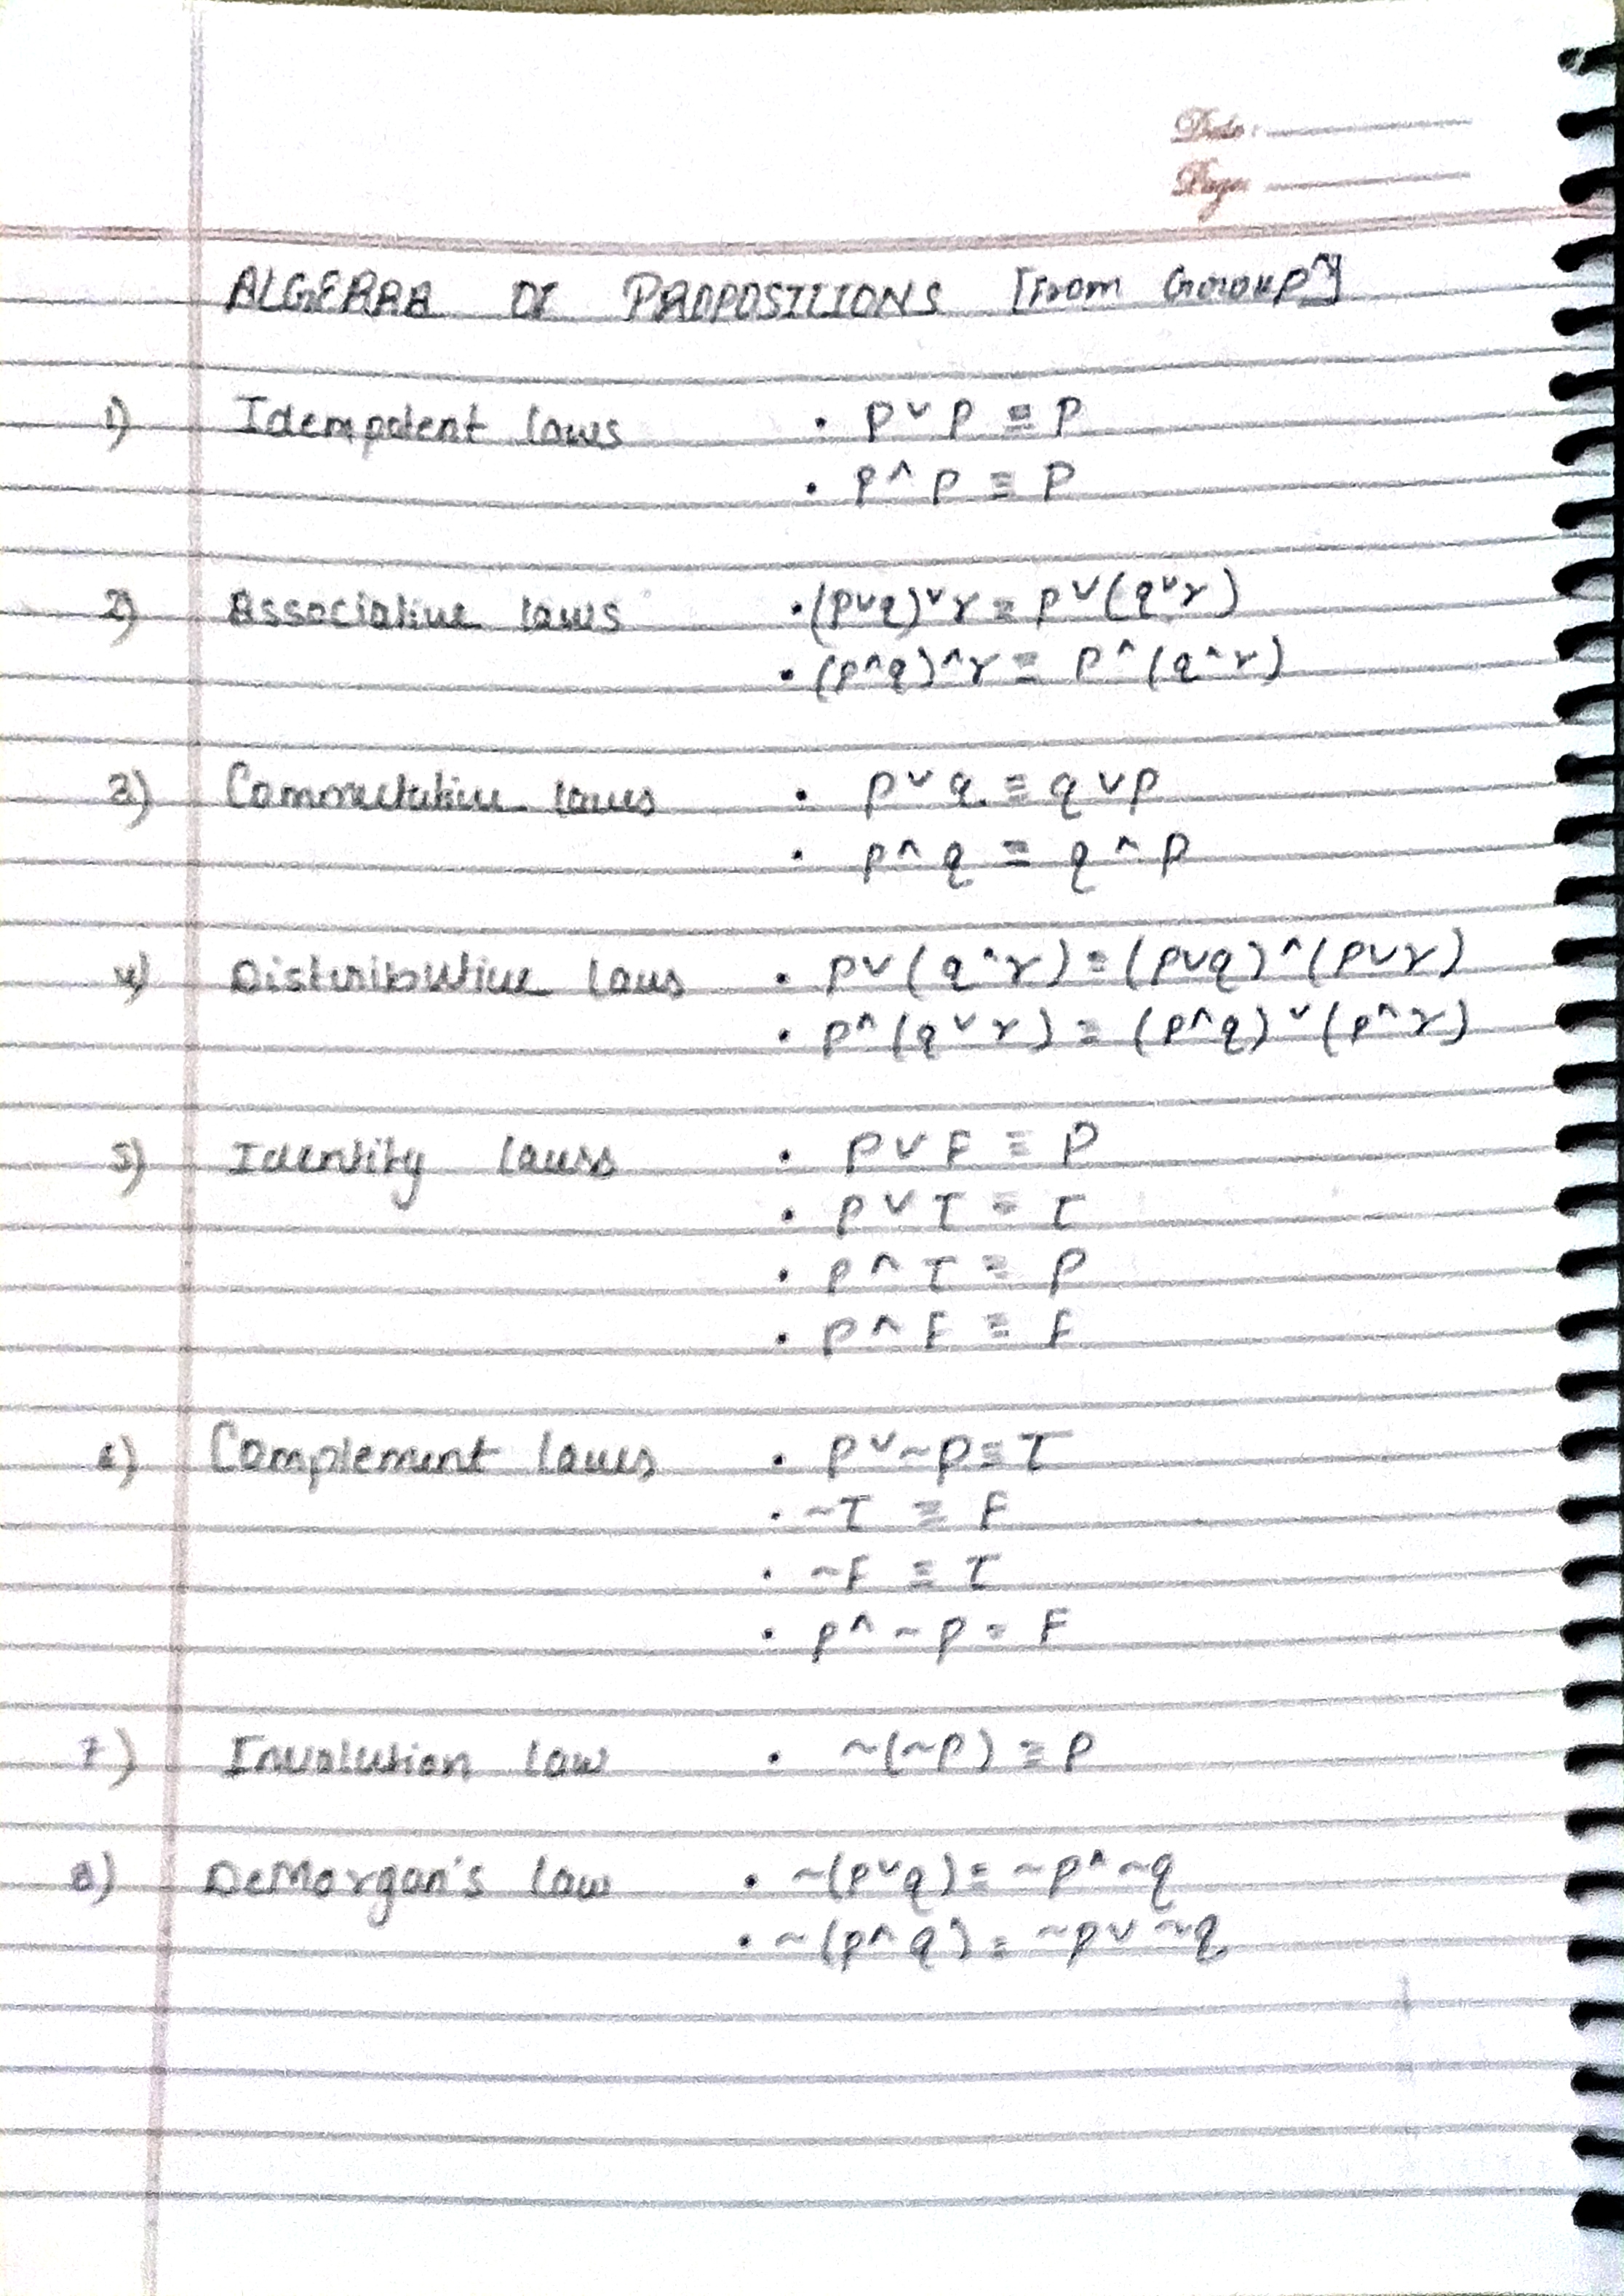 Date:
Page:
ALGEBRA OF PROPOSITIONS [From Group"]
1) Idempotent laws • p ∨ p ≡ p
• p ∧ p ≡ p
2) Associative laws • (p∨q)∨r ≡ p∨(q∨r)
• (p∧q)∧r ≡ p∧(q∧r)
3) Commutative laws • p∨q ≡ q∨p
• p∧q ≡ q∧p
4) Distributive laws • p∨(q∧r) ≡ (p∨q)∧(p∨r)
• p∧(q∨r) ≡ (p∧q)∨(p∧r)
5) Identity laws • p∨F ≡ p
• p∨T ≡ T
• p∧T ≡ p
• p∧F ≡ F
6) Complement laws • p∨~p ≡ T
• ~T ≡ F
• ~F ≡ T
• p∧~p ≡ F
7) Involution law • ~(~p) ≡ p
8) DeMorgan's law • ~(p∨q) ≡ ~p∧~q
• ~(p∧q) ≡ ~p∨~q